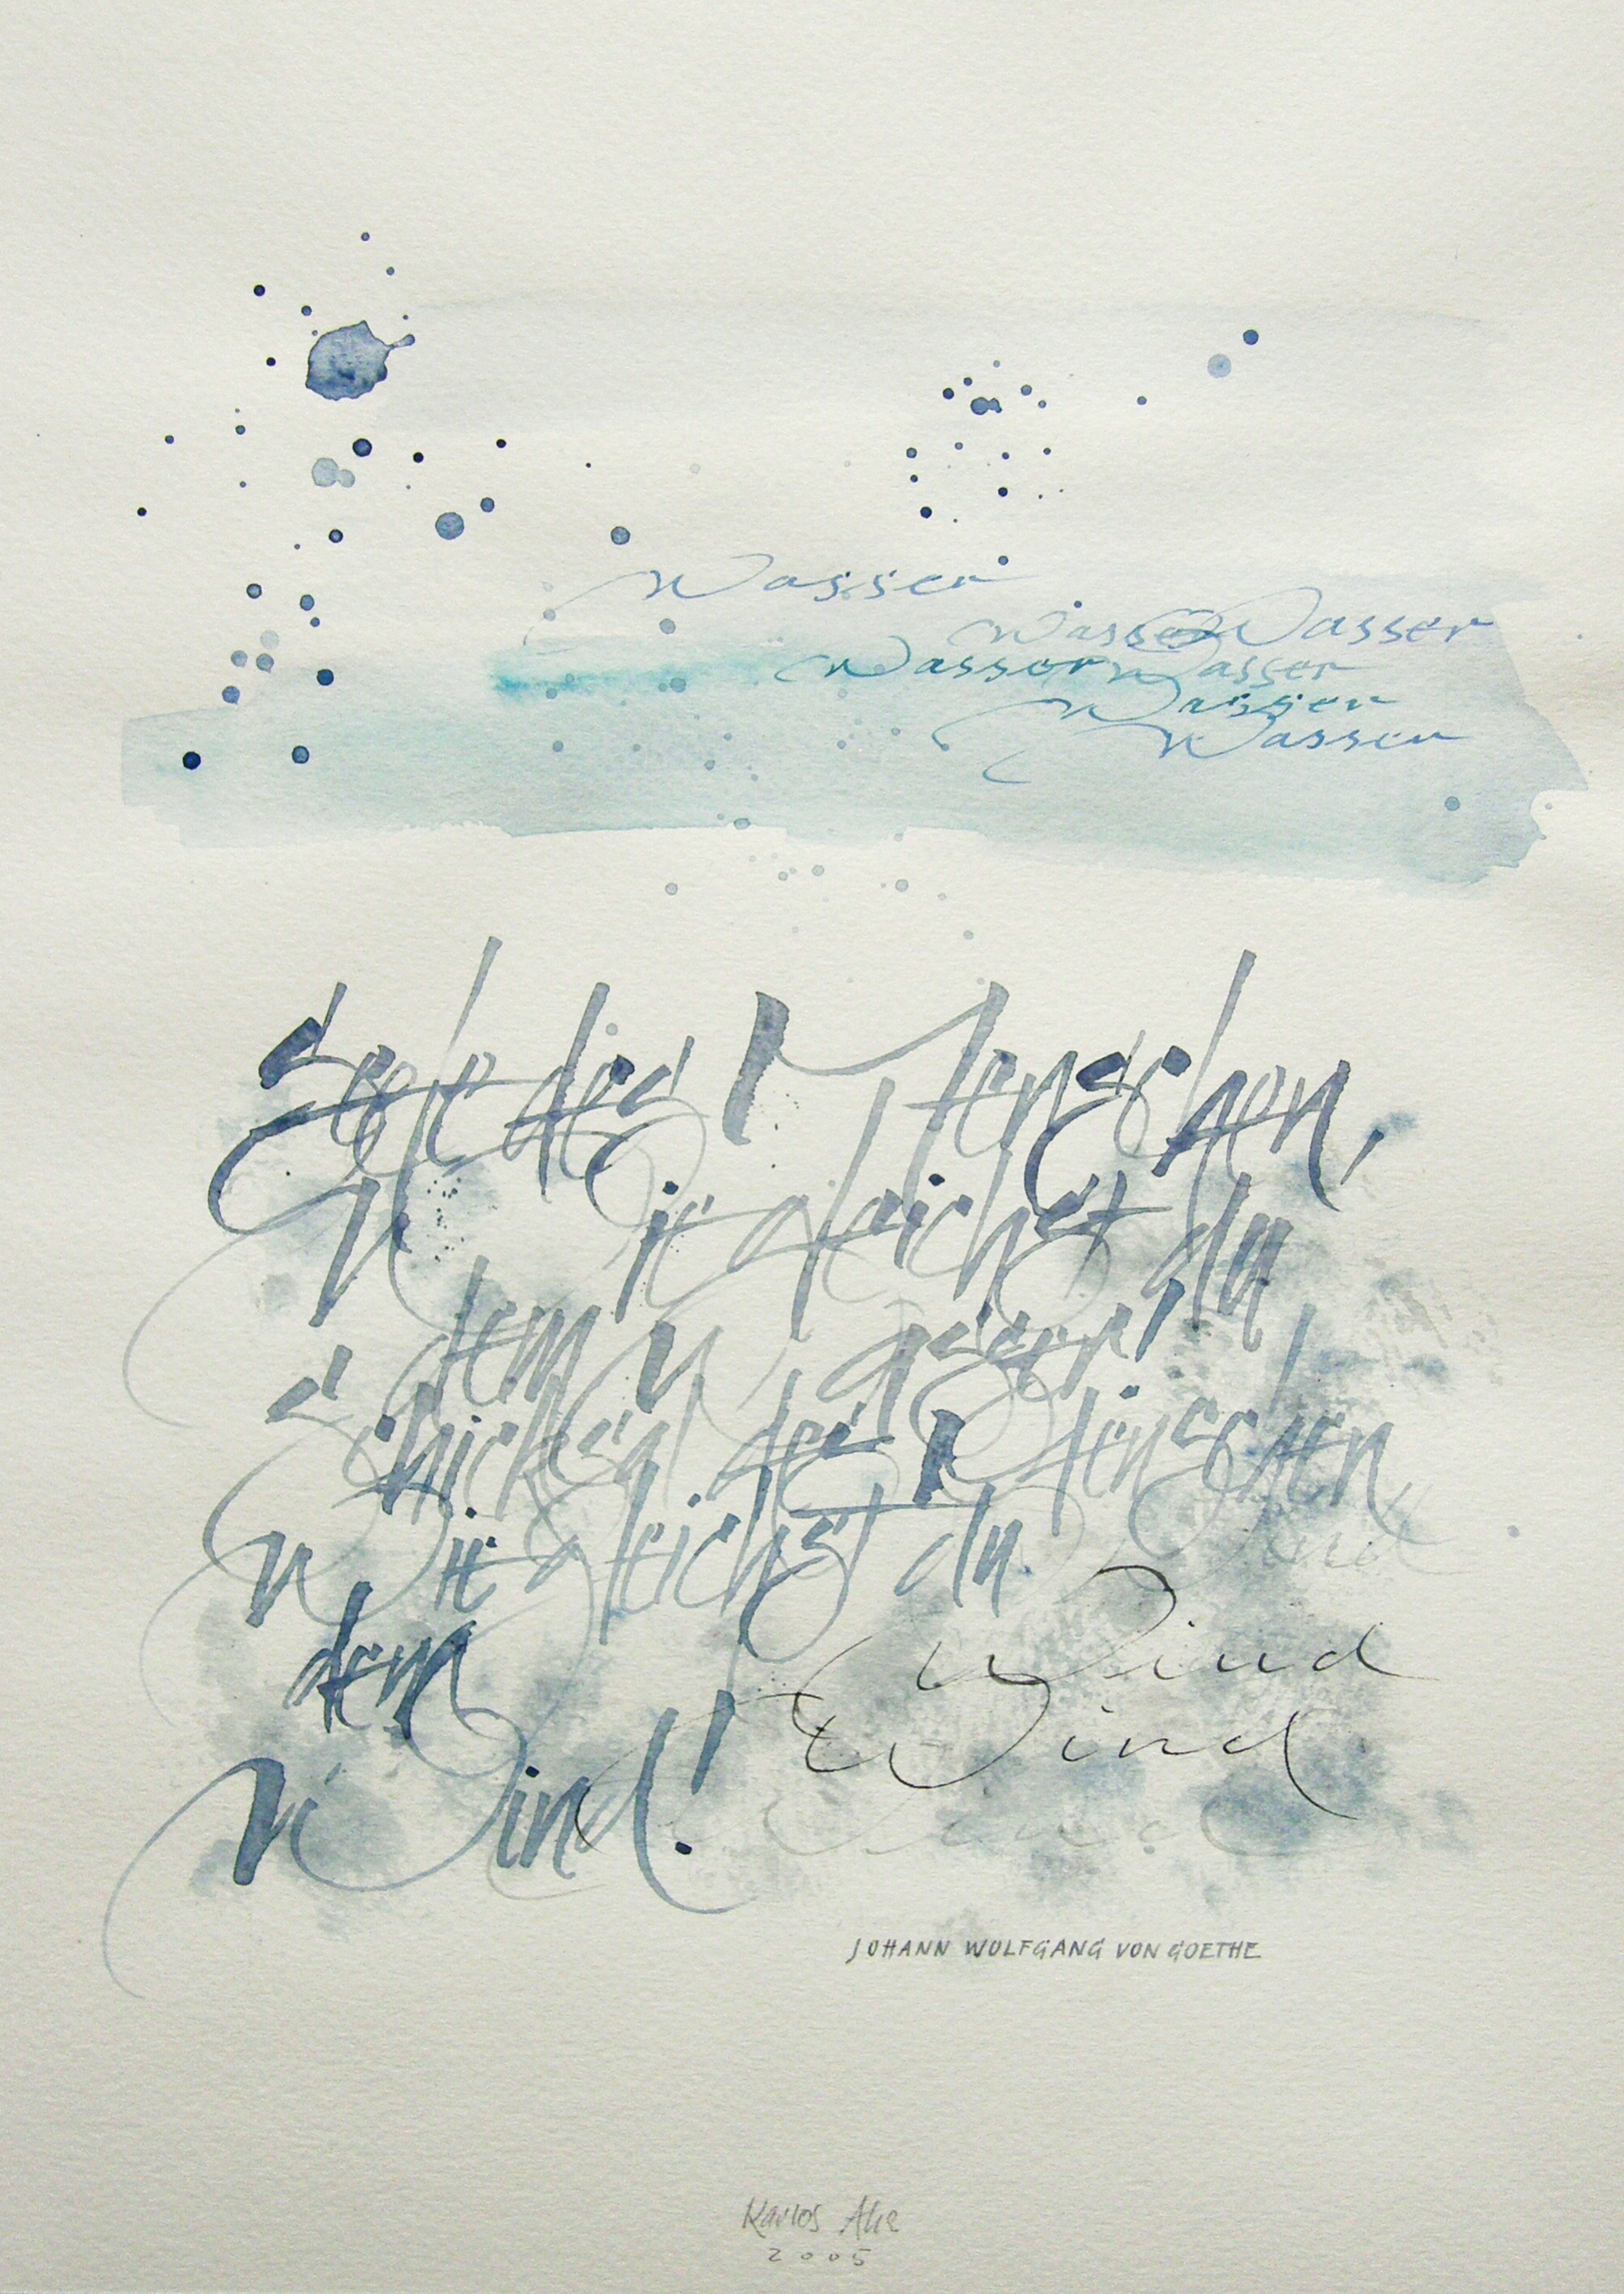 Wasser
Wasser Wasser
Wasser Wasser
Wasser
Wasser
Seele des Menschen,
Wie gleichst du
dem Wasser!
Schicksal des Menschen
Wie gleichst du
dem Wind
Wind! Wind
JOHANN WOLFGANG VON GOETHE
Karlos
2005